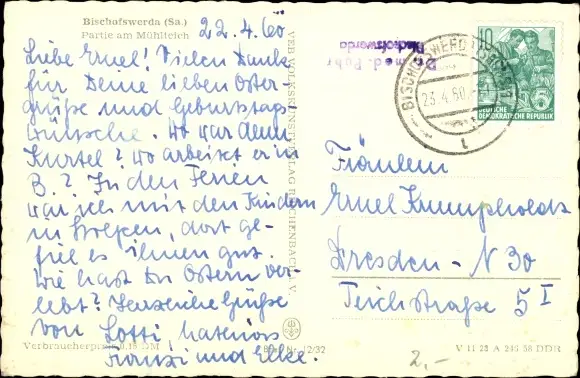 Bischofswerda (Sa.)
Partie am Mühlteich
22.4.60
Liebe Emel! Vielen Dank
für Deine lieben Oster-
grüße und Geburtstags-
wünsche. Wo war denn
Kurtel? Wo arbeitet er in
B.? In den Ferien
war ich mit den Kindern
in Stolpen, dort ge-
fiel es ihnen gut.
Wie hast Du Ostern ver-
lebt? Herzliche Grüße
von Lotti,
und Elke.
Verbraucherpreis 0,15 DM
Best.-Nr. 12/32
VEB VOLKSKUNSTVERLAG REICHENBACH I. V.
Dr. med. Fuhr
Bischofswerda
BISCHOFSWERDA
23.4.60
10
DEUTSCHE
DEMOKRATISCHE REPUBLIK
Fräulein
Emel Krumpholdt
Dresden - N 30
Teichstraße 5 I
V 11 28 A 216 58 DDR
2,-